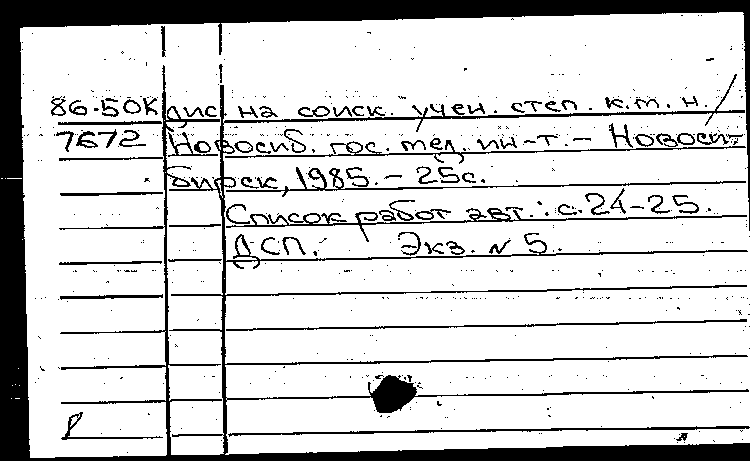 86-50К дис. на соиск. учен. степ. к.т.н. /
7672 Новосиб. гос. мед. ин-т. - Новоси-
бирск, 1985. - 25с.
Список работ авт.: с. 24-25.
ДСП. Экз. № 5.